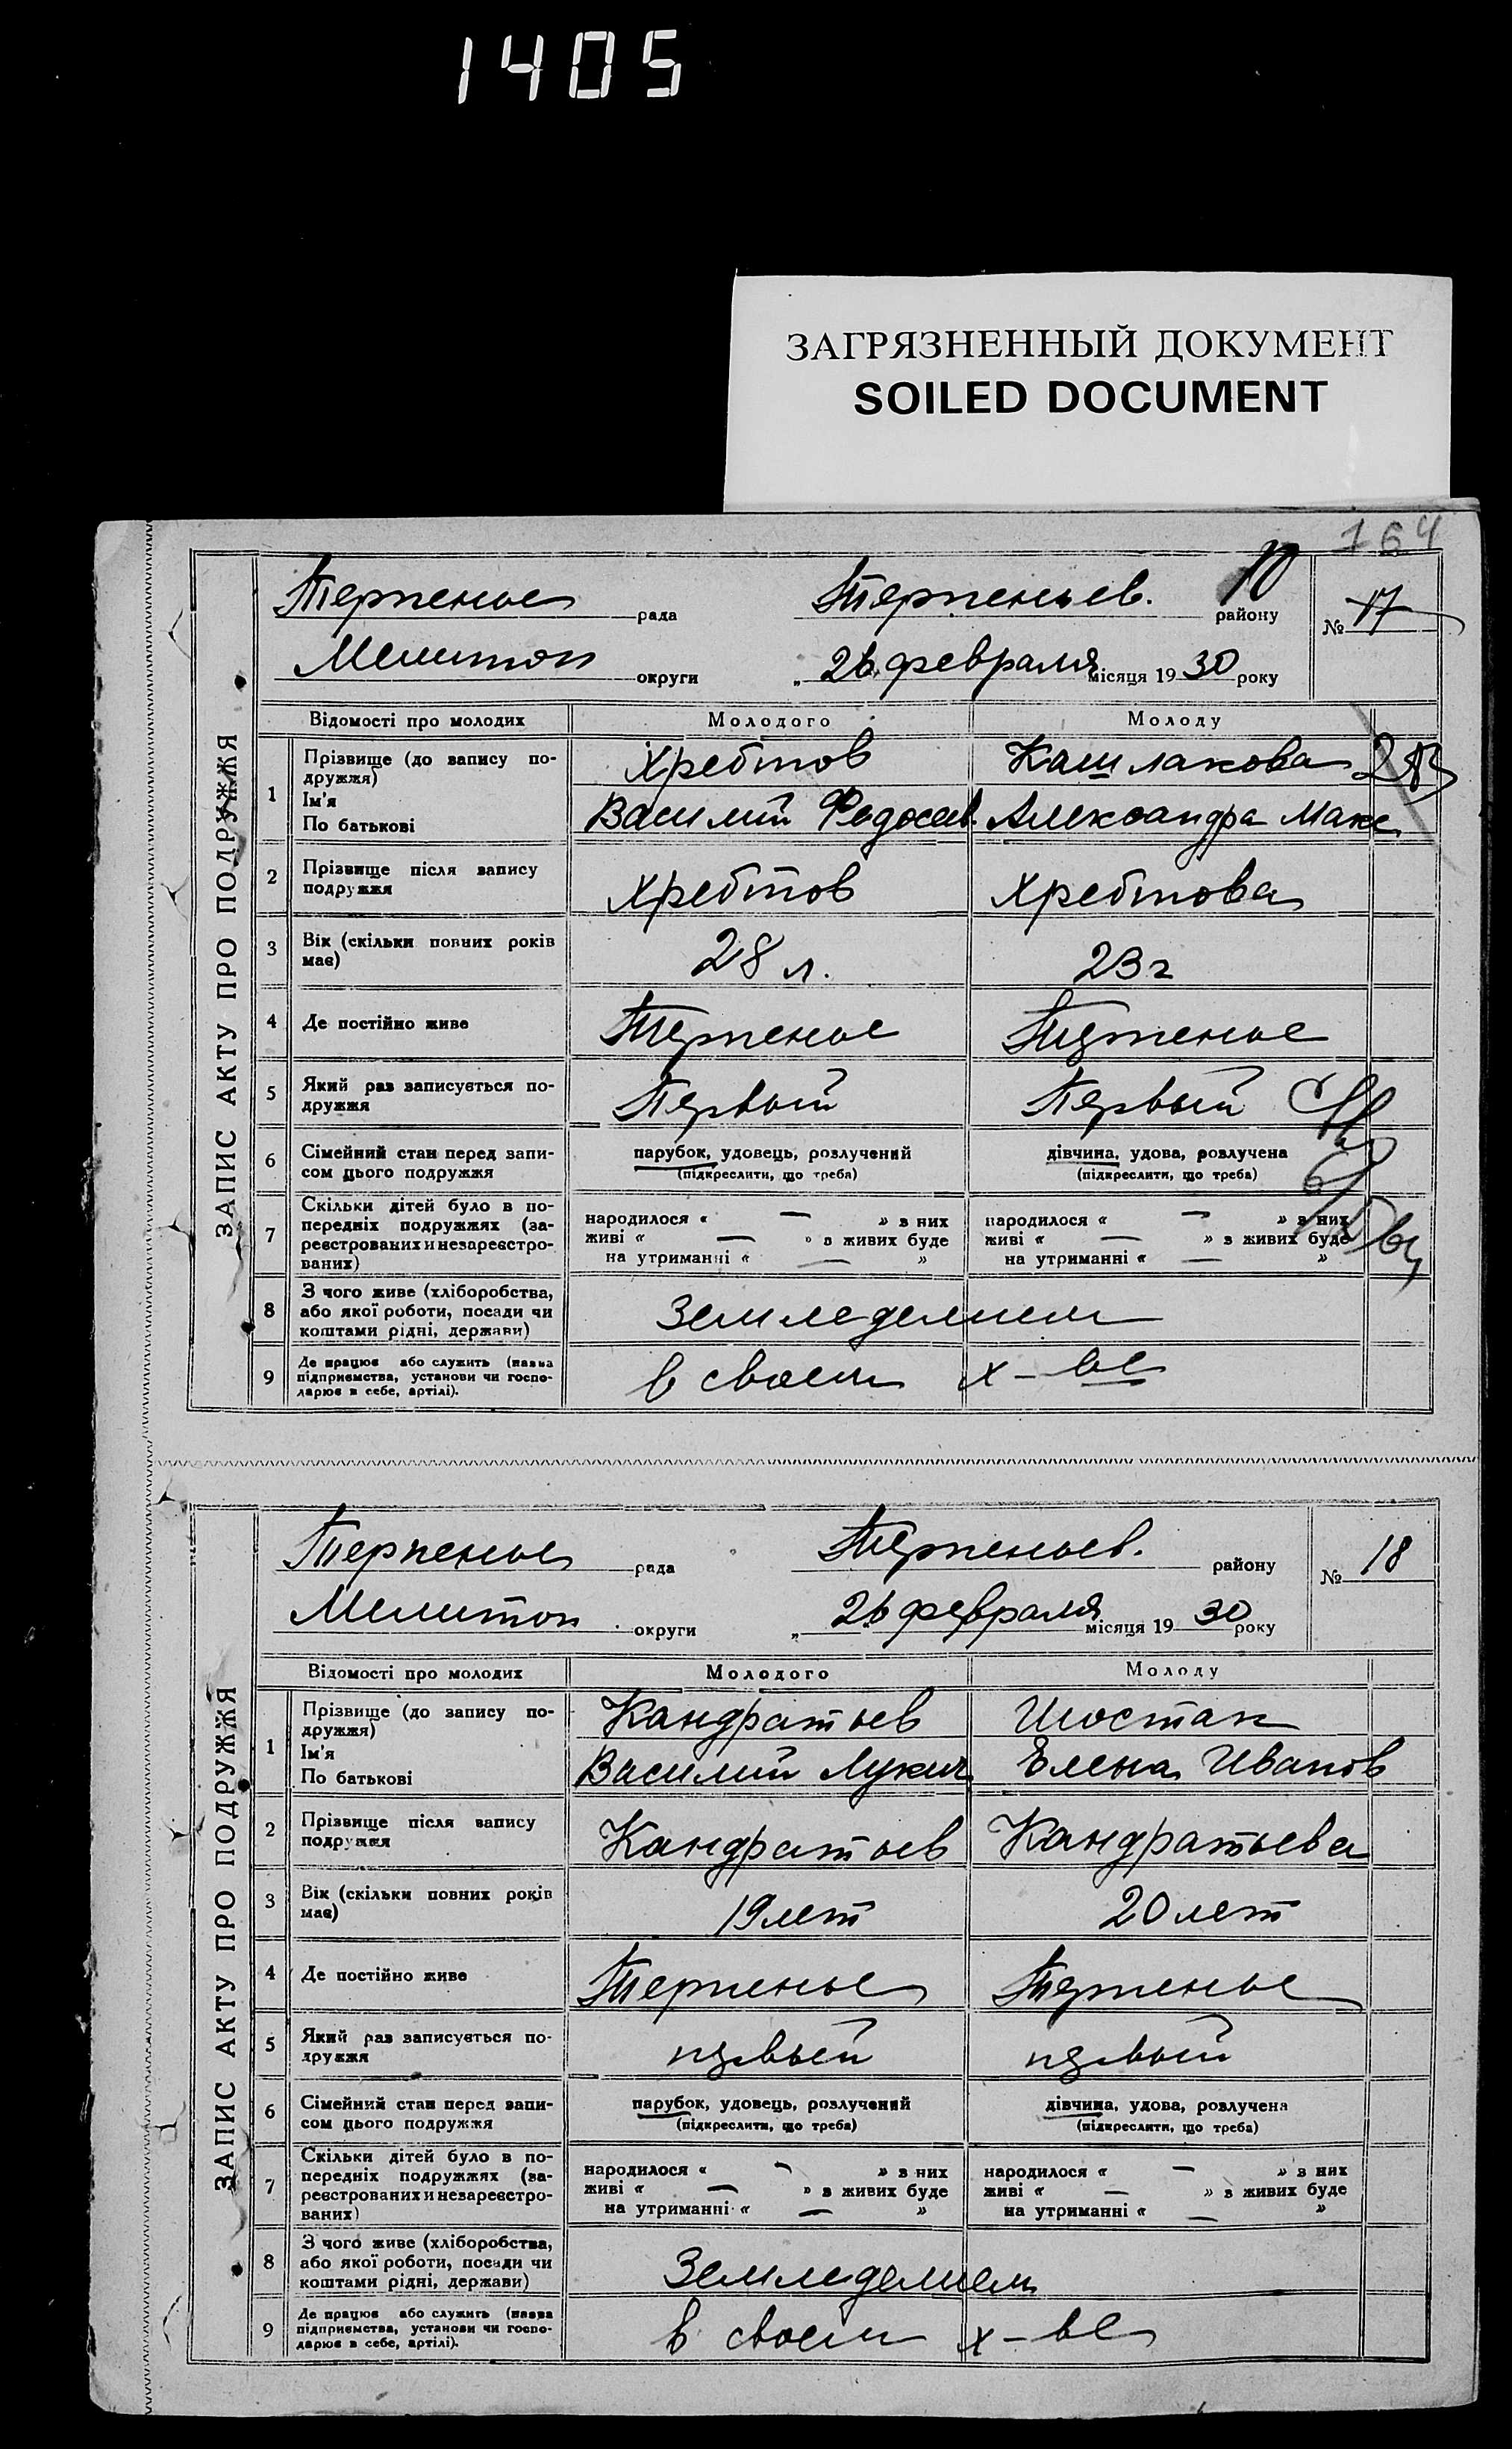 1405
ЗАГРЯЗНЕННЫЙ ДОКУМЕНТ
SOILED DOCUMENT
164
ЗАПИС АКТУ ПРО ПОДРУЖЖЯ
Терпенье рада Терпеньев. району № 17
Мелитоп округи „ 26 февраля місяця 1930 року
Відомості про молодих Молодого Молоду
1 Прізвище (до запису по-
дружжя) Хребтов Кашлакова
Ім'я
По батькові Василий Федосеев. Александра Макс.
2 Прізвище після запису
подружжя Хребтов Хребтова
3 Вік (скільки повних років
має) 28 л. 23 г
4 Де постійно живе Терпенье Терпенье
5 Який раз записується по-
дружжя Первый Первый
6 Сімейний стан перед запи-
сом цього подружжя
парубок, удовець, розлучений дівчина, удова, розлучена
(підкреслити, що треба) (підкреслити, що треба)
7 Скільки дітей було в по-
передніх подружжях (за-
реєстрованих и незареєстро-
ваних)
народилося « — » з них народилося « — » з них
живі « — » з живих буде живі « — » з живих буде
на утриманні « — » на утриманні « — »
8 З чого живе (хліборобства,
або якої роботи, посади чи
коштами рідні, держави) Земледелием
9 Де працює або служить (назва
підприємства, установи чи госпо-
дарює в себе, артілі). в своем х-ве
ЗАПИС АКТУ ПРО ПОДРУЖЖЯ
Терпенье рада Терпеньев. району № 18
Мелитоп округи „ 26 февраля місяця 1930 року
Відомості про молодих Молодого Молоду
1 Прізвище (до запису по-
дружжя) Кандратьев Шостак
Ім'я
По батькові Василий Лукич Елена Иванов
2 Прізвище після запису
подружжя Кандратьев Кандратьева
3 Вік (скільки повних років
має) 19 лет 20 лет
4 Де постійно живе Терпенье Терпенье
5 Який раз записується по-
дружжя первый первый
6 Сімейний стан перед запи-
сом цього подружжя
парубок, удовець, розлучений дівчина, удова, розлучена
(підкреслити, що треба) (підкреслити, що треба)
7 Скільки дітей було в по-
передніх подружжях (за-
реєстрованих и незареєстро-
ваних)
народилося « — » з них народилося « — » з них
живі « — » з живих буде живі « — » з живих буде
на утриманні « — » на утриманні « — »
8 З чого живе (хліборобства,
або якої роботи, посади чи
коштами рідні, держави) Земледелием
9 Де працює або служить (назва
підприємства, установи чи госпо-
дарює в себе, артілі). в своем х-ве